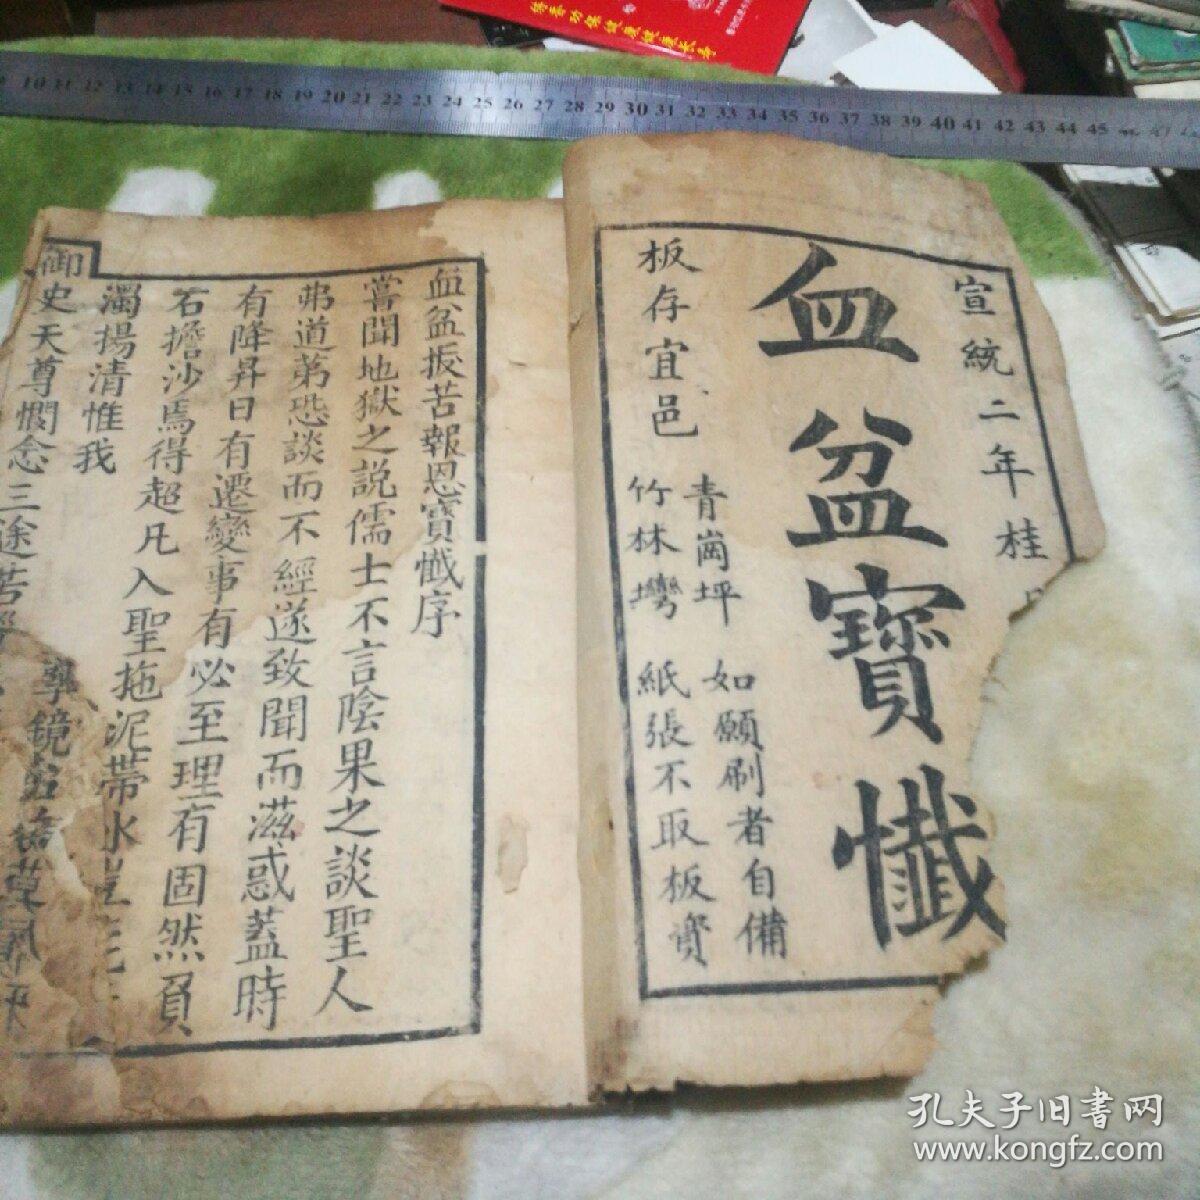 宣統二年桂
血盆寶懺
板存宜邑
青崗坪
竹林塆
如願刷者自備
紙張不取板資
血盆拔苦報恩寶懺序
嘗聞地獄之説儒士不言陰果之談聖人
弗道第恐談而不經遂致聞而滋惑蓋時
有降昇日有遷變事有必至理有固然負
石擔沙焉得超凡入聖拖泥帶水
濁揚清惟我
御史天尊憫念三途苦
孔夫子旧书网
www.kongfz.com
10 11 12 13 14 15 16 17 18 19 20 21 22 23 24 25 26 27 28 29 30 31 32 33 34 35 36 37 38 39 40 41 42 43 44 45